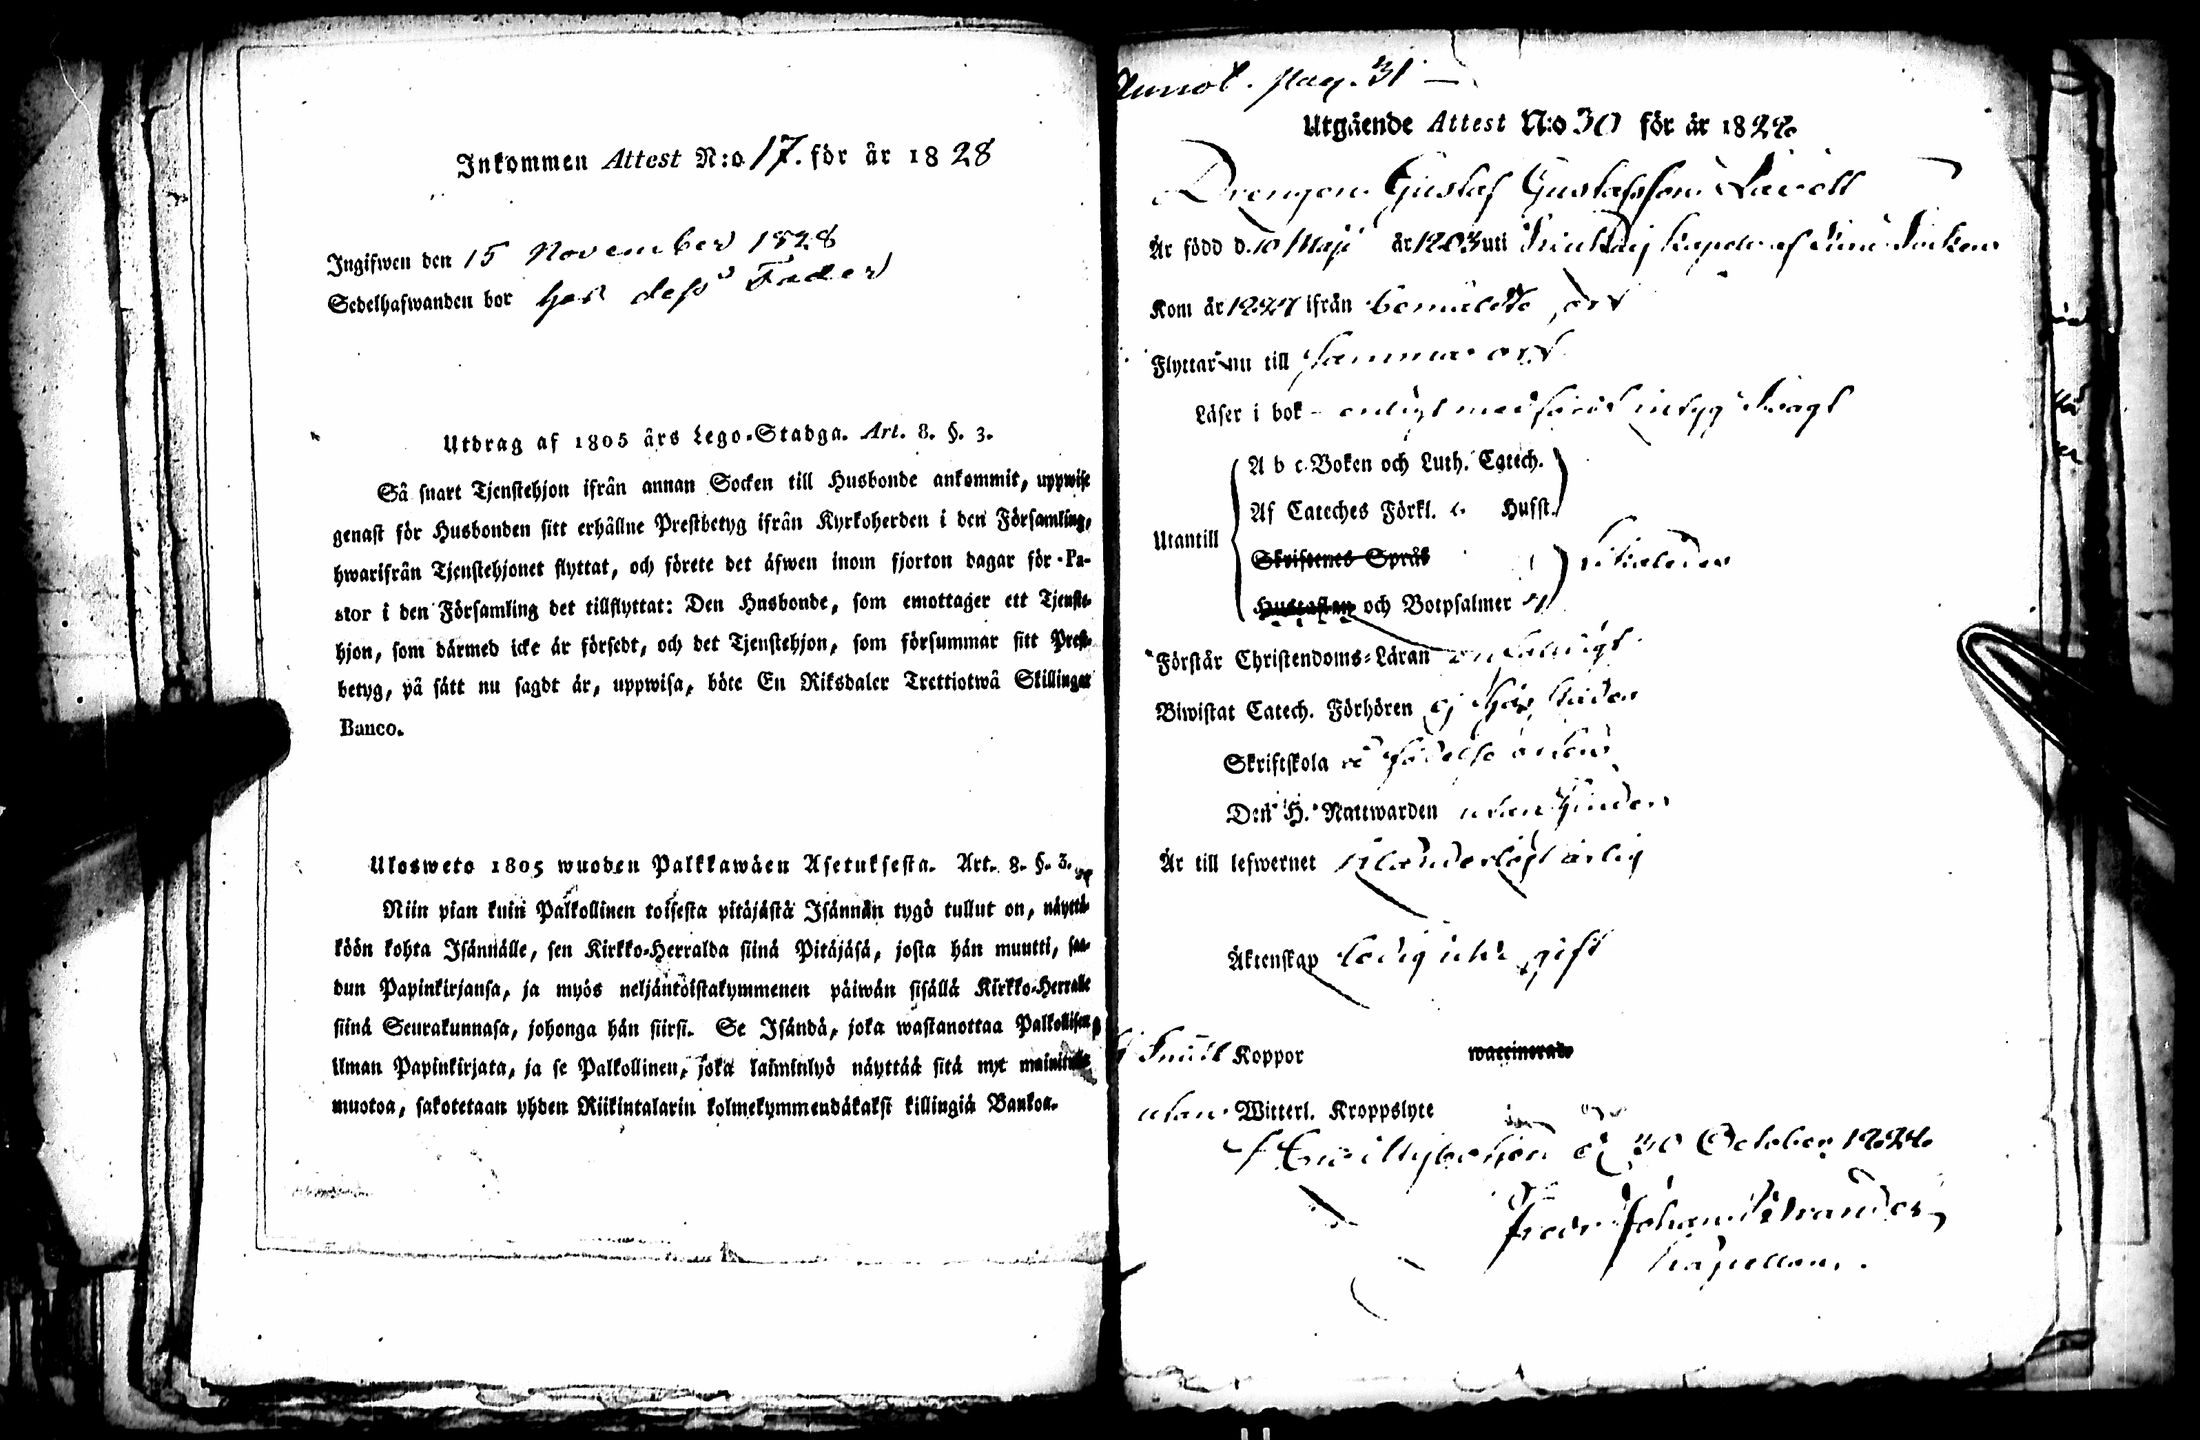 Inkommen Attest N:o 17. för år 1828
Ingifwen den 15 November 1828
Sedelhafwanden bor hos dess Fader
Utdrag af 1805 års Lego-Stadga. Art. 8. §. 3.
Så snart Tjenstehjon ifrån annan Socken till Husbonde ankommit, uppwise
genast för Husbonden sitt erhållne Prestbetyg ifrån Kyrkoherden i den Församling,
hwarifrån Tjenstehjonet flyttat, och förete det äfwen inom fjorton dagar för Pa-
stor i den Församling det tillflyttat: Den Husbonde, som emottager ett Tjenste-
hjon, som därmed icke är försedt, och det Tjenstehjon, som försummar sitt Prest-
betyg, på sätt nu sagdt är, uppwisa, böte En Riksdaler Trettiotwå Skillingar
Banco.
Ulosweto 1805 wuoden Palkkawäen Asetuksesta. Art. 8. §. 3.
Niin pian kuin Palkollinen toisesta pitäjästä Isännän tygö tullut on, näyttä-
köön kohta Isännälle, sen Kirkko-Herralda siinä Pitäjäsä, josta hän muutti, saa-
dun Papinkirjansa, ja myös neljäntöistakymmenen päiwän sisällä Kirkko-Herralle
siinä Seurakunnasa, johonga hän siirsi. Se Isändä, joka wastanottaa Palkollisen
ilman Papinkirjata, ja se Palkollinen, joka laiminlyö näyttää sitä nyt mainitulla
muotoa, sakotetaan yhden Riikintalarin kolmekymmendäkaksi killingiä Bankoa.
Annot. pag. 31
Utgående Attest N:o 30 för år 1828
Drengen Gustaf Gustafsson
År född d. 10 Maji år 1803 uti Kapell af Socken
Kom år 1827 ifrån bemälte ort
Flyttar nu till samma ort
Läser i bok enligt medfördt intyg svagt
A b c-Boken och Luth. Catech.
Af Cateches Förkl. Husst.
Utantill
Skriftenes Språk
Hustaflan och Botpsalmer
Förstår Christendoms-Läran enfaldigt
Biwistat Catech. Förhören ej
Skriftskola å födelse orten
Den H. Nattwarden utan hinder
Är till lefwernet oklanderligt ärlig
Äktenskap ledig
Koppor waccinerad
utan Witterl. Kroppslyte
d. 30 October 1828
Fredr. Johan Strander
Kapellan.